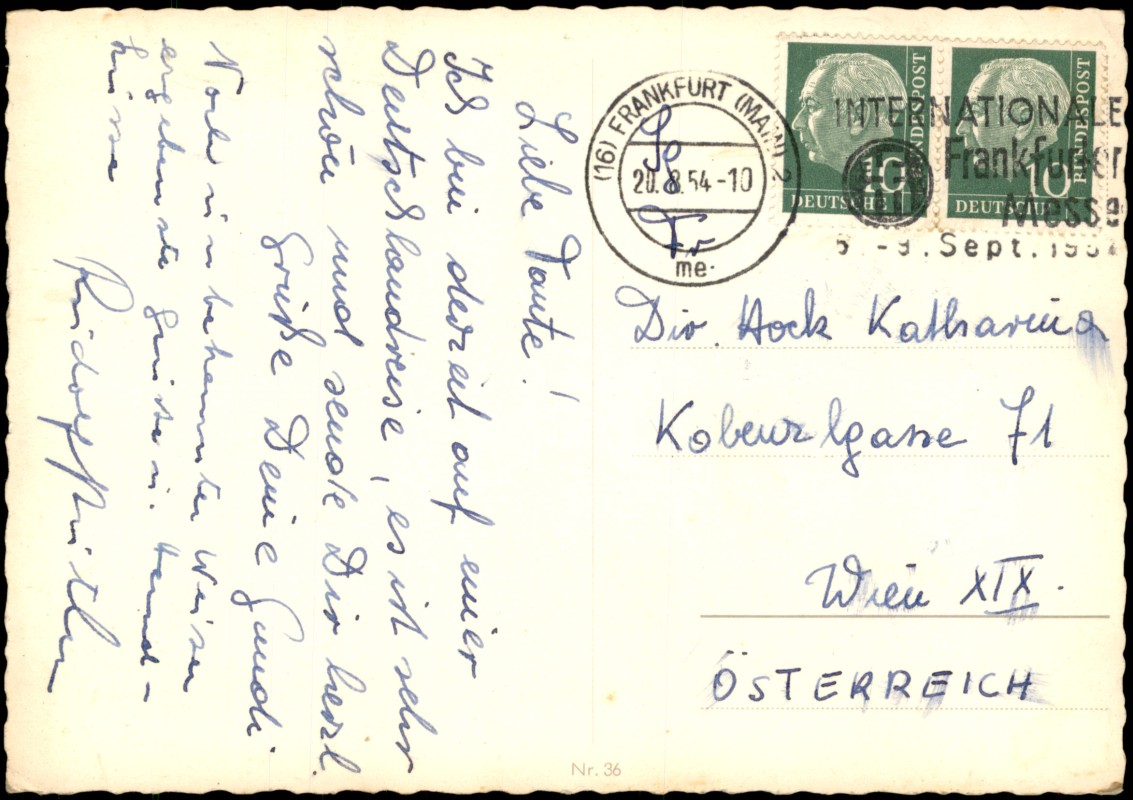 Liebe Tante!
Ich bin derzeit auf einer
Deutschlandreise, es ist sehr
schön und sende Dir herzl.
Grüße Deine Gundi
Noch in bekannter Weise
ergebenste Grüße u. Hand-
küsse
(16) FRANKFURT (MAIN) 2
20.8.54-10
me
DEUTSCHE BUNDESPOST
10
DEUTSCHE BUNDESPOST
10
INTERNATIONALE
Frankfurter
Messe
5.-9. Sept. 1954
Dir. Hock Katharina
Kobenzlgasse 71
Wien XIX.
ÖSTERREICH
Nr. 36